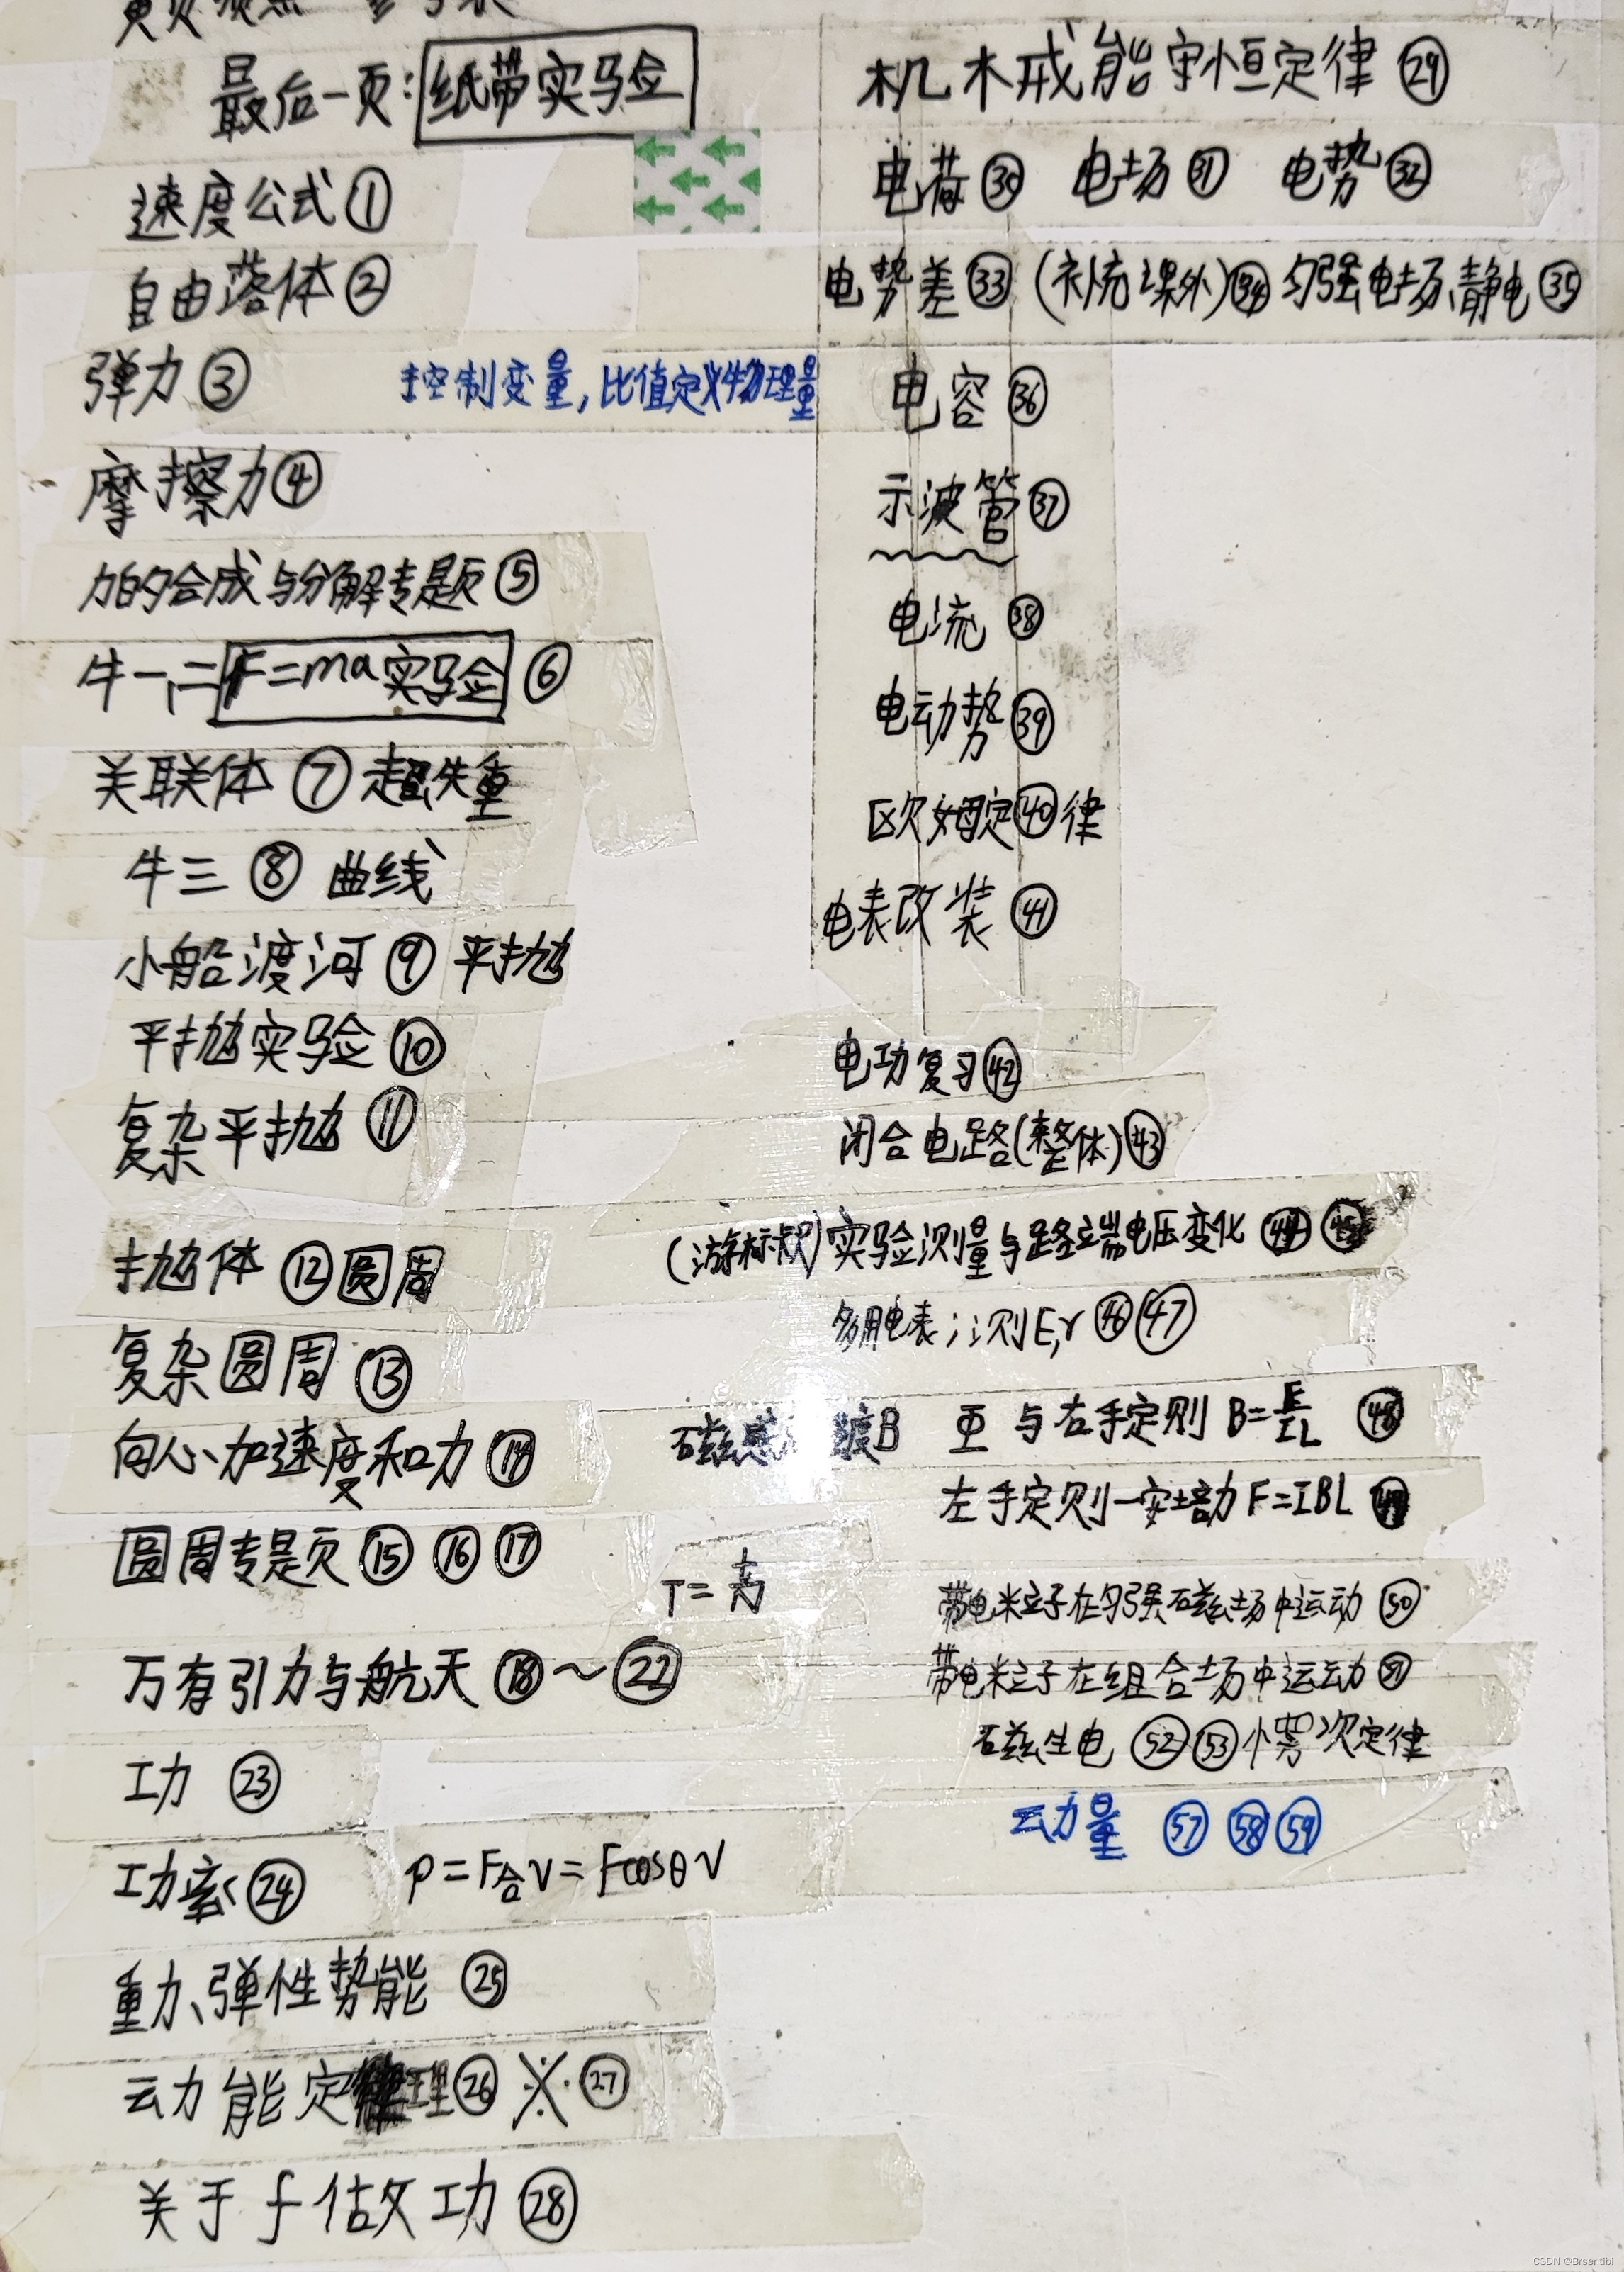 最后一页:纸带实验
速度公式①
自由落体②
弹力③
控制变量,比值定义物理量
摩擦力④
力的合成与分解专题⑤
牛一,二F=ma实验⑥
关联体⑦超失重
牛三⑧曲线
小船渡河⑨平抛
平抛实验⑩
复杂平抛⑪
抛体⑫圆周
复杂圆周⑬
向心加速度和力⑭
圆周专题⑮⑯⑰
万有引力与航天⑱~㉒
工力㉓
工力率㉔
P=F合V=FcosθV
重力、弹性势能㉕
动能定理㉖※㉗
关于f做功㉘
机木戒能守恒定律㉙
电荷㉚ 电场㉛ 电势㉜
电势差㉝(补充课外)㉞匀强电场、静电㉟
电容㊱
示波管㊲
电流㊳
电动势㊴
欧姆定㊵律
电表改装㊶
电功复习㊷
闭合电路(整体)㊸
(游标卡尺)实验测量与路端电压变化㊹㊺
多用电表;测E,r㊻㊼
B 与右手定则 B=F/IL ㊽
左手定则一安培力F=IBL㊾
T=
带电粒子在匀强磁场中运动㊿
带电粒子在组合场中运动
磁生电 (52)(53)愣次定律
动量 (57)(58)(59)
CSDN @Brsentibi